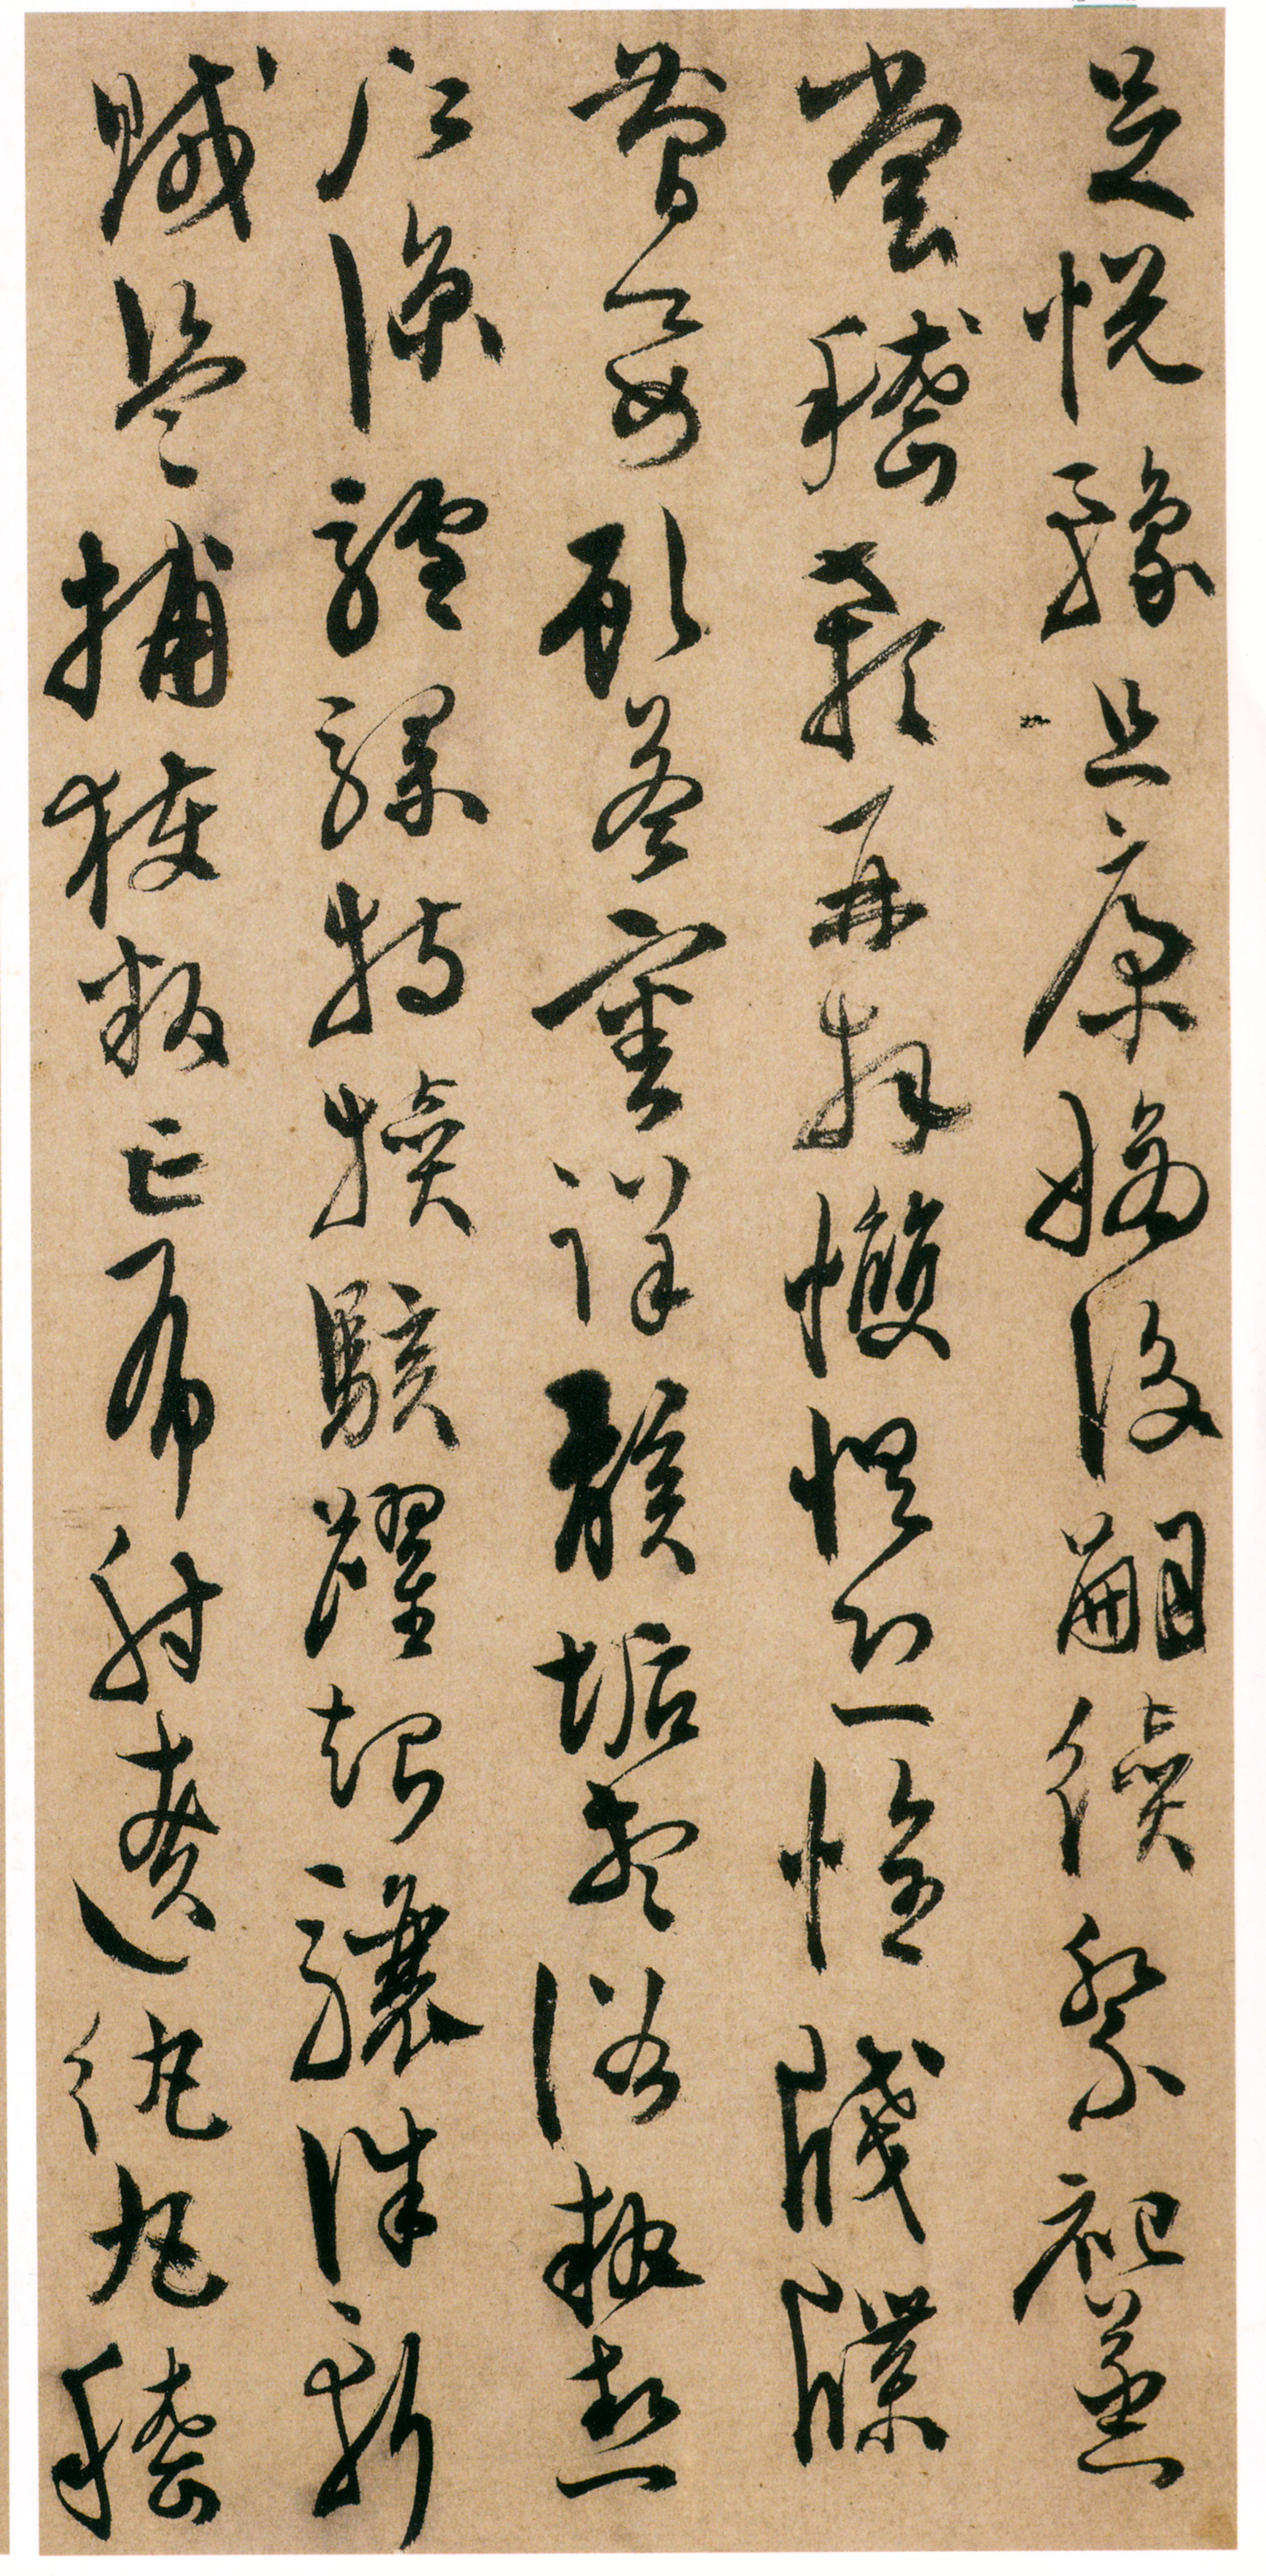 足悅豫且康嫡後嗣續祭祀蒸
嘗稽顙再拜𢥠懼恐惶牋牒
簡要顧答審詳骸垢想浴執熱
願涼驢騾特犢駭躍超驤誅斬
賊盜捕獲叛亡布射遼紈丸嵇